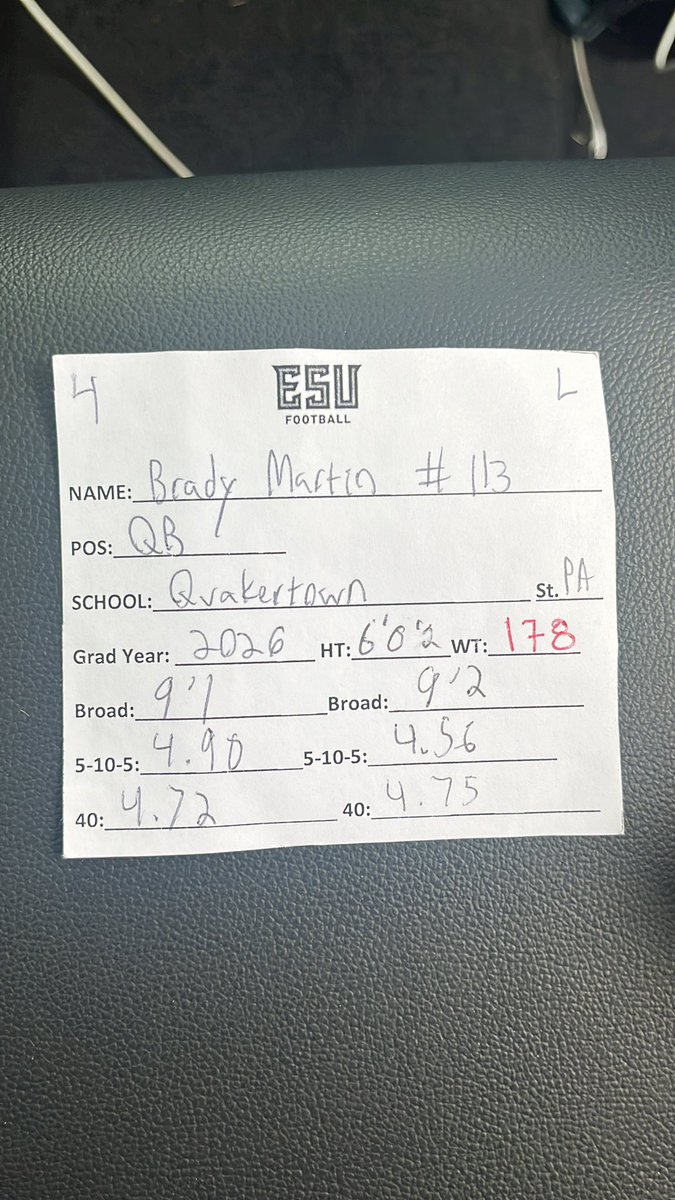 4 ESU L
FOOTBALL
NAME: Brady Martin #113
POS: QB
SCHOOL: Quakertown St. PA
Grad Year: 2026 HT: 6'0"2 WT: 178
Broad: 9'1 Broad: 9'2
5-10-5: 4.90 5-10-5: 4.56
40: 4.72 40: 4.75